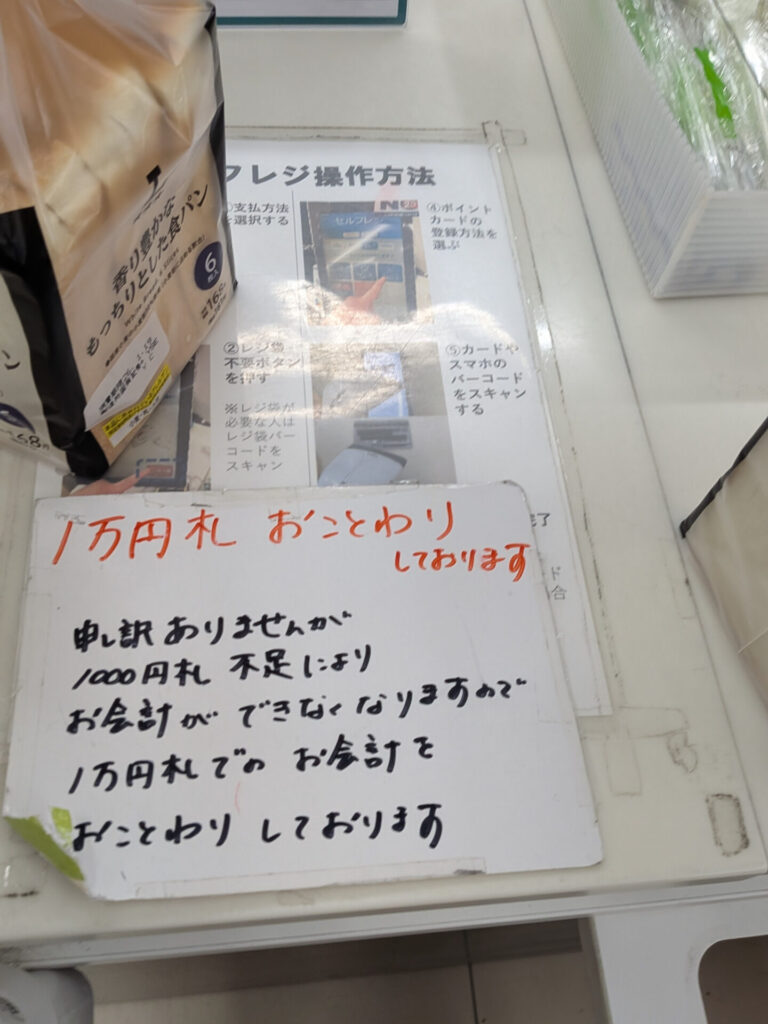 フレジ操作方法
①支払方法
を選択する
セルフレジ
④ポイント
カードの
登録方法を
選ぶ
②レジ袋
不要ボタン
を押す
※レジ袋が
必要な人は
レジ袋バー
コードを
スキャン
⑤カードや
スマホの
バーコード
をスキャン
する
香り豊かな
もっちりとした食パン
6
枚入
1万円札 おことわり
しております
申し訳ありませんが
1000円札 不足により
お会計ができなくなりますので
1万円札での お会計を
おことわり しております